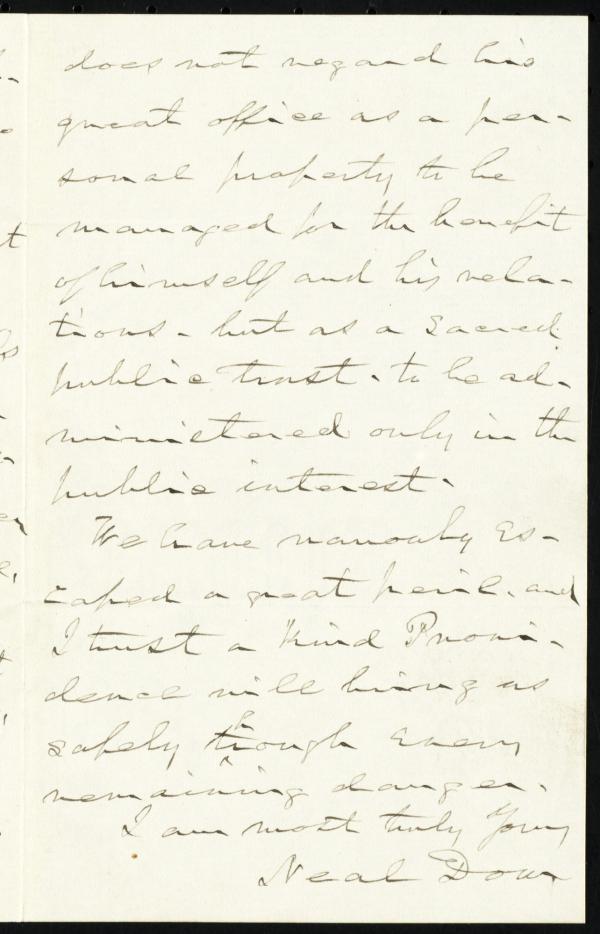 does not regard his
great office as a per-
sonal property to be
managed for the benefit
of himself and his rela-
tions - but as a Sacred
public trust - to be ad-
ministered only in the
public interest.
We have narrowly es-
caped a great peril, and
I trust a Kind Provi-
dence will bring us
safely through every
remaining danger.
I am most truly Yours
Neal Dow